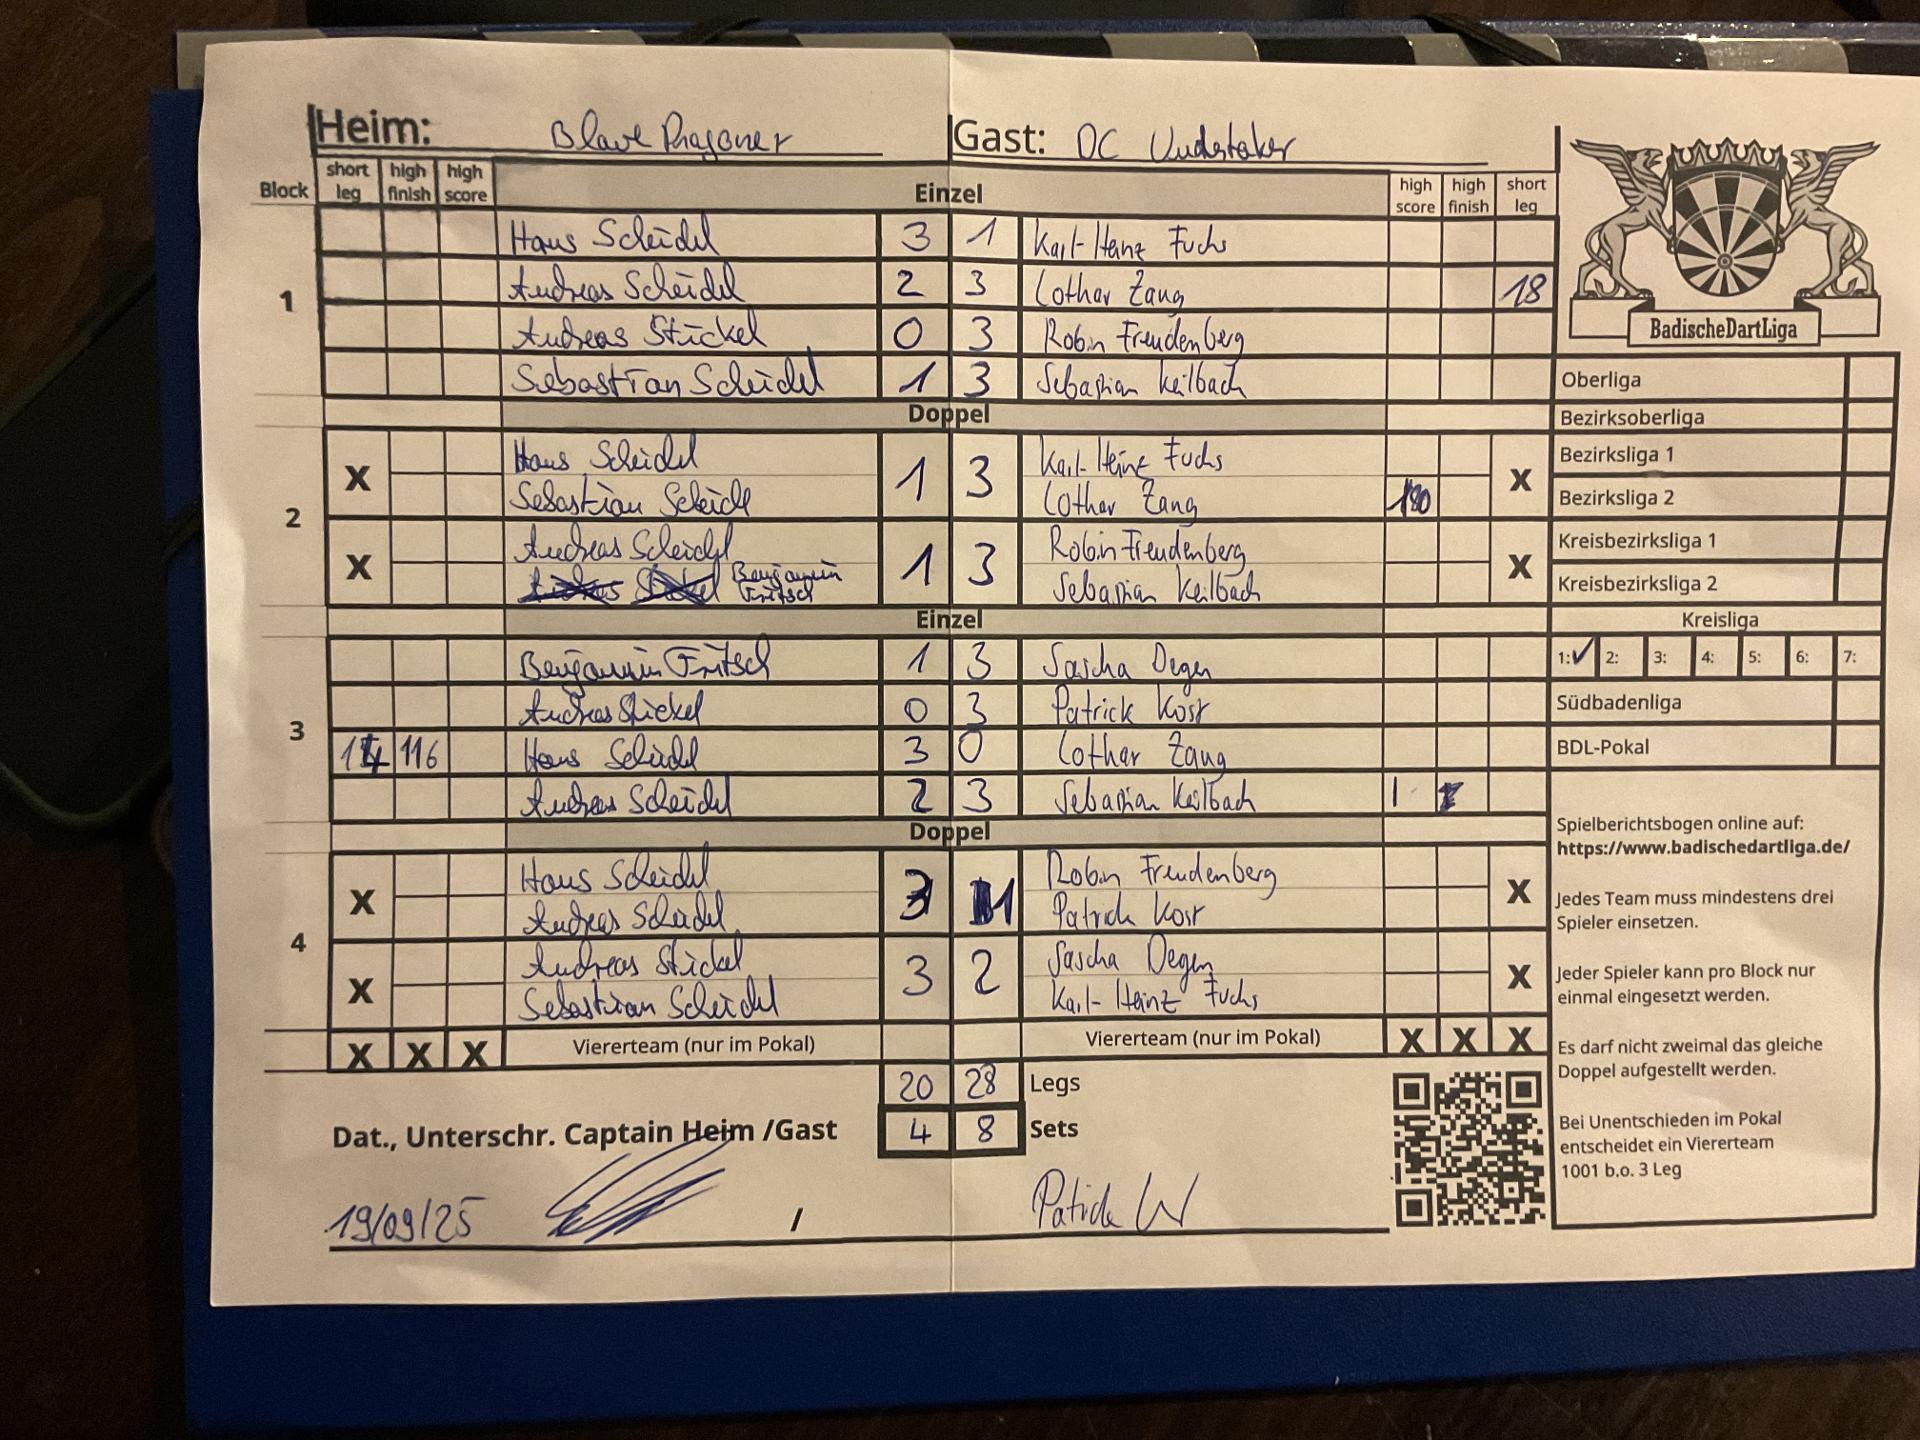 Heim: Blaue Dragoner Gast: DC Undertaker
Block short leg high finish high score Einzel high score high finish short leg
1
Hans Scheidel 3 1 Karl-Heinz Fuchs
Andreas Scheidel 2 3 Lothar Zang 18
Andreas Stickel 0 3 Robin Freudenberg
Sebastian Scheidel 1 3 Sebastian Keilbach
Doppel
2
X Hans Scheidel 1 3 Karl-Heinz Fuchs X
Sebastian Scheidel Lothar Zang 180
X Andreas Scheidel 1 3 Robin Freudenberg X
Benjamin Fritsch Sebastian Keilbach
Einzel
3
Benjamin Fritsch 1 3 Sascha Degen
Andreas Stickel 0 3 Patrick Kost
116 Hans Scheidel 3 0 Lothar Zang
Andreas Scheidel 2 3 Sebastian Keilbach
Doppel
4
X Hans Scheidel 3 1 Robin Freudenberg X
Andreas Scheidel Patrick Kost
X Andreas Stickel 3 2 Sascha Degen X
Sebastian Scheidel Karl-Heinz Fuchs
X X X Viererteam (nur im Pokal) Viererteam (nur im Pokal) X X X
20 28 Legs
Dat., Unterschr. Captain Heim /Gast 4 8 Sets
19/09/25 / Patrick
BadischeDartLiga
Oberliga
Bezirksoberliga
Bezirksliga 1
Bezirksliga 2
Kreisbezirksliga 1
Kreisbezirksliga 2
Kreisliga
1: ✓ 2: 3: 4: 5: 6: 7:
Südbadenliga
BDL-Pokal
Spielberichtsbogen online auf:
https://www.badischedartliga.de/
Jedes Team muss mindestens drei
Spieler einsetzen.
Jeder Spieler kann pro Block nur
einmal eingesetzt werden.
Es darf nicht zweimal das gleiche
Doppel aufgestellt werden.
Bei Unentschieden im Pokal
entscheidet ein Viererteam
1001 b.o. 3 Leg